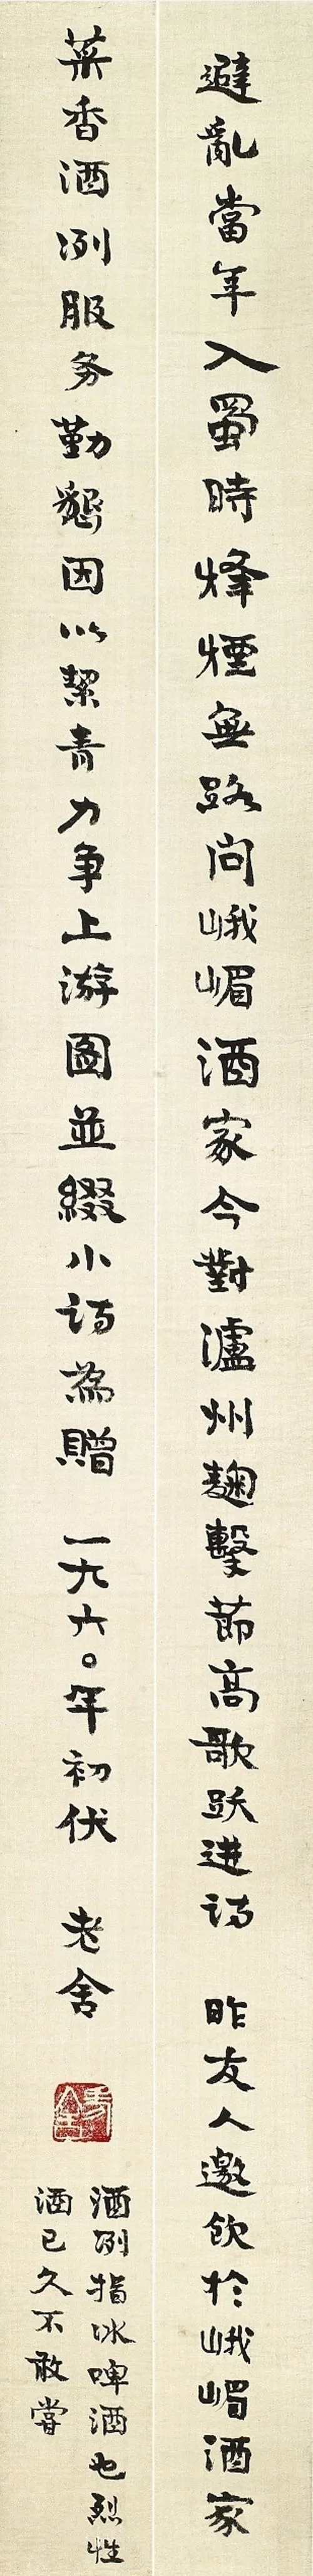 避亂當年入蜀時烽煙無路問峨嵋酒家今對瀘州麯擊節高歌跃進詩 昨友人邀飲於峨嵋酒家
菜香酒冽服务勤懇因以絜青力争上游圖並綴小詩為贈 一九六〇年初伏 老舍
舍予
酒冽指冰啤酒也烈性
酒已久不敢嘗